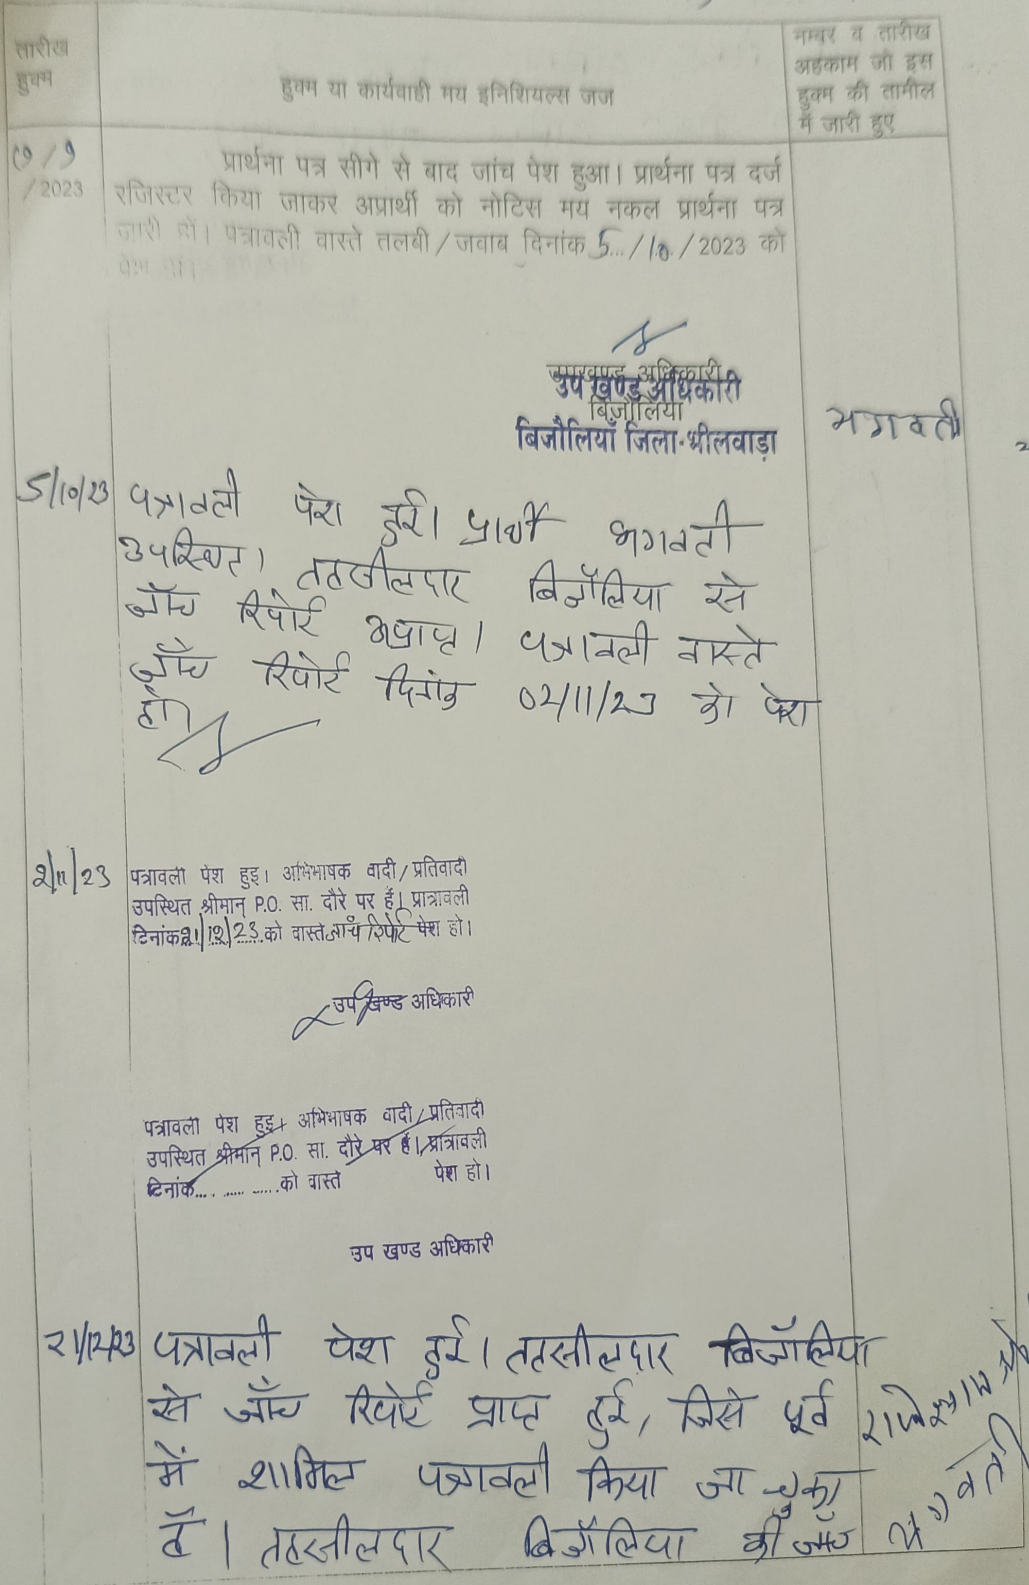 तारीख
हुक्म
हुक्म या कार्यवाही मय इनिशियल्स जज
नम्बर व तारीख
अहकाम जो इस
हुक्म की तामील
में जारी हुए
/2023
प्रार्थना पत्र सीगे से बाद जांच पेश हुआ। प्रार्थना पत्र दर्ज
रजिस्टर किया जाकर अप्रार्थी को नोटिस मय नकल प्रार्थना पत्र
जारी हो। पत्रावली वास्ते तलबी/जवाब दिनांक 5../10./2023 को
पेश हो।
उपखण्ड अधिकारी
उप खण्ड अधिकारी
बिजौलिया
बिजौलियाँ जिला-भीलवाड़ा
भगवती
5/10/23 पत्रावली पेश हुई। प्रार्थी भगवती
उपस्थित। तहसीलदार बिजौलिया से
जाँच रिपोर्ट अप्राप्त। पत्रावली वास्ते
जाँच रिपोर्ट दिनांक 02/11/23 को पेश
हो।
2/11/23 पत्रावली पेश हुइ। अभिभाषक वादी/प्रतिवादी
उपस्थित श्रीमान् P.O. सा. दौरे पर हैं। प्रात्रावली
दिनांक 21/12/23 को वास्ते जाँच रिपोर्ट पेश हो।
उप खण्ड अधिकारी
पत्रावली पेश हुइ। अभिभाषक वादी/प्रतिवादी
उपस्थित श्रीमान् P.O. सा. दौरे पर हैं। प्रात्रावली
दिनांक... ......... को वास्ते पेश हो।
उप खण्ड अधिकारी
21/12/23 पत्रावली पेश हुई। तहसीलदार बिजौलिया
से जाँच रिपोर्ट प्राप्त हुई, जिसे पूर्व
में शामिल पत्रावली किया जा चुका
है। तहसीलदार बिजौलिया की जाँच
भगवती